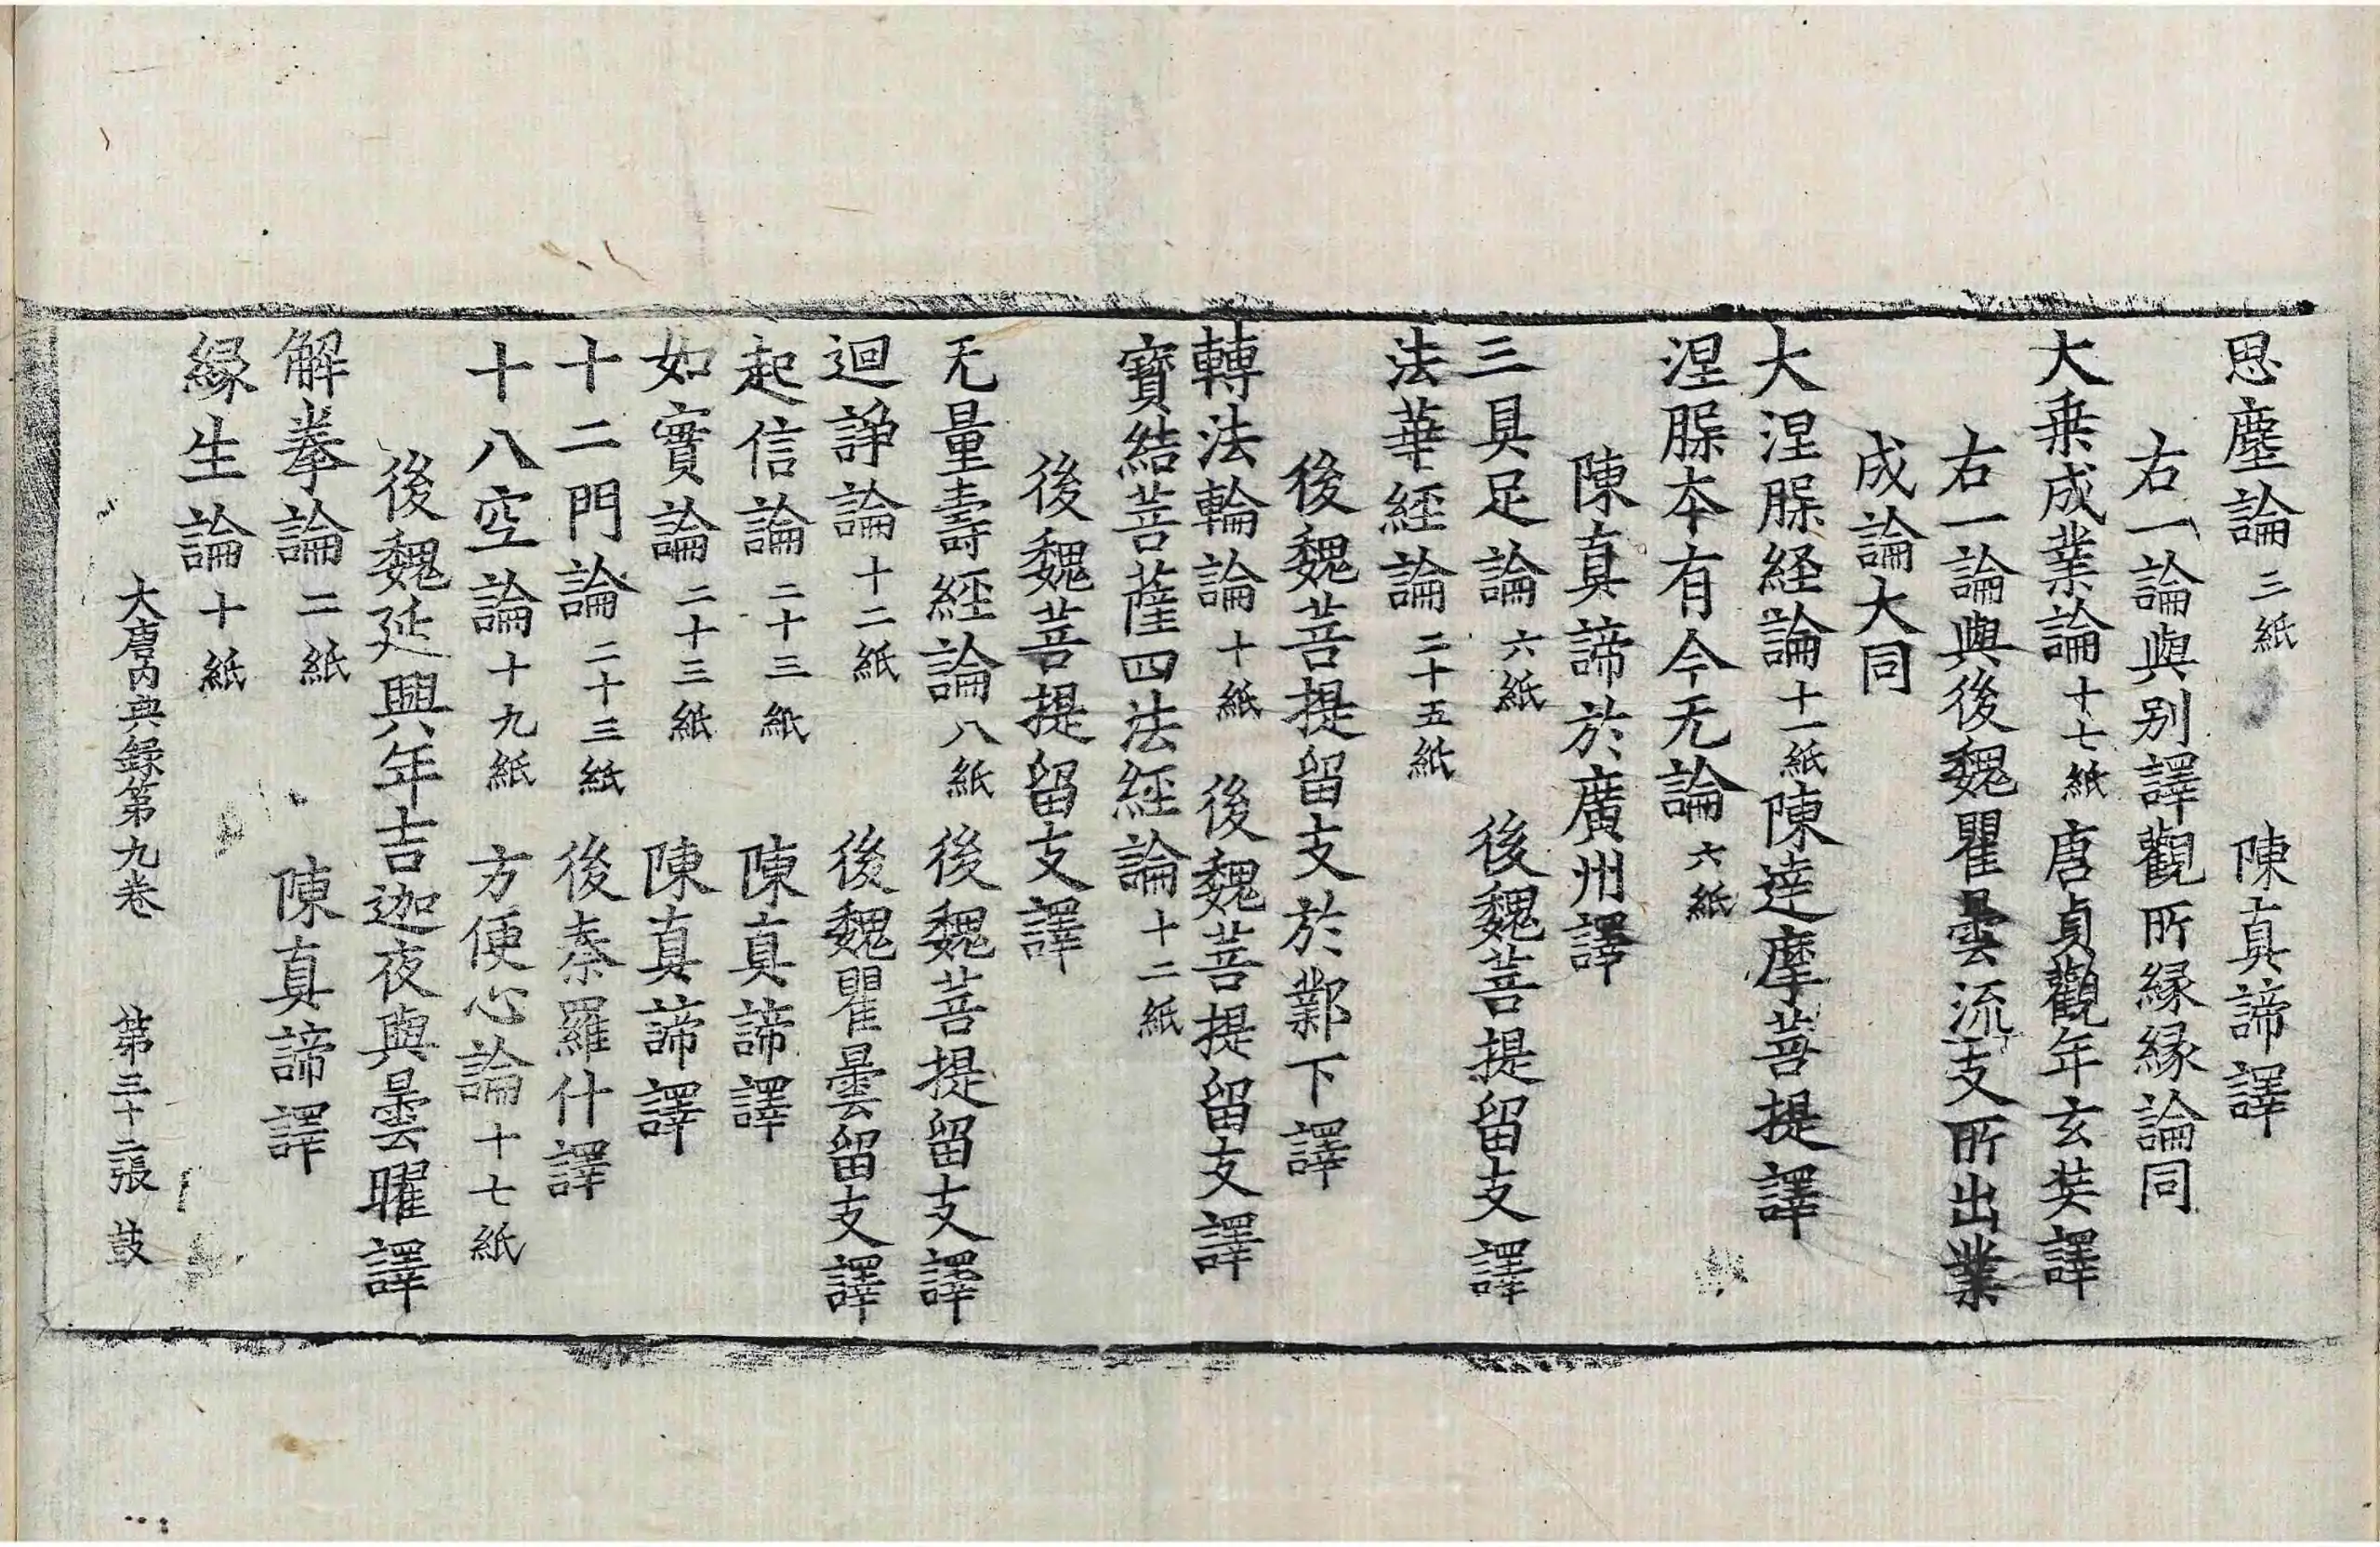 思塵論三紙 陳真諦譯
右一論與別譯觀所縁縁論同
大乗成業論十七紙 唐貞觀年玄奘譯
右一論與後魏瞿曇流支所出業
成論大同
大涅脲経論十一紙陳達摩菩提譯
涅脲本有今无論六紙
陳真諦於廣州譯
三具足論六紙 後魏菩提留支譯
法華經論二十五紙
後魏菩提留支於鄴下譯
轉法輪論十紙 後魏菩提留支譯
寶結菩薩四法經論十二紙
後魏菩提留支譯
无量壽經論八紙 後魏菩提留支譯
迴諍論十二紙 後魏瞿曇留支譯
起信論二十三紙 陳真諦譯
如實論二十三紙 陳真諦譯
十二門論二十三紙 後秦羅什譯
十八空論十九紙 方便心論十七紙
後魏延興年吉迦夜與曇曜譯
解拳論二紙 陳真諦譯
縁生論十紙
大唐內典録第九卷 第三十二張 鼓